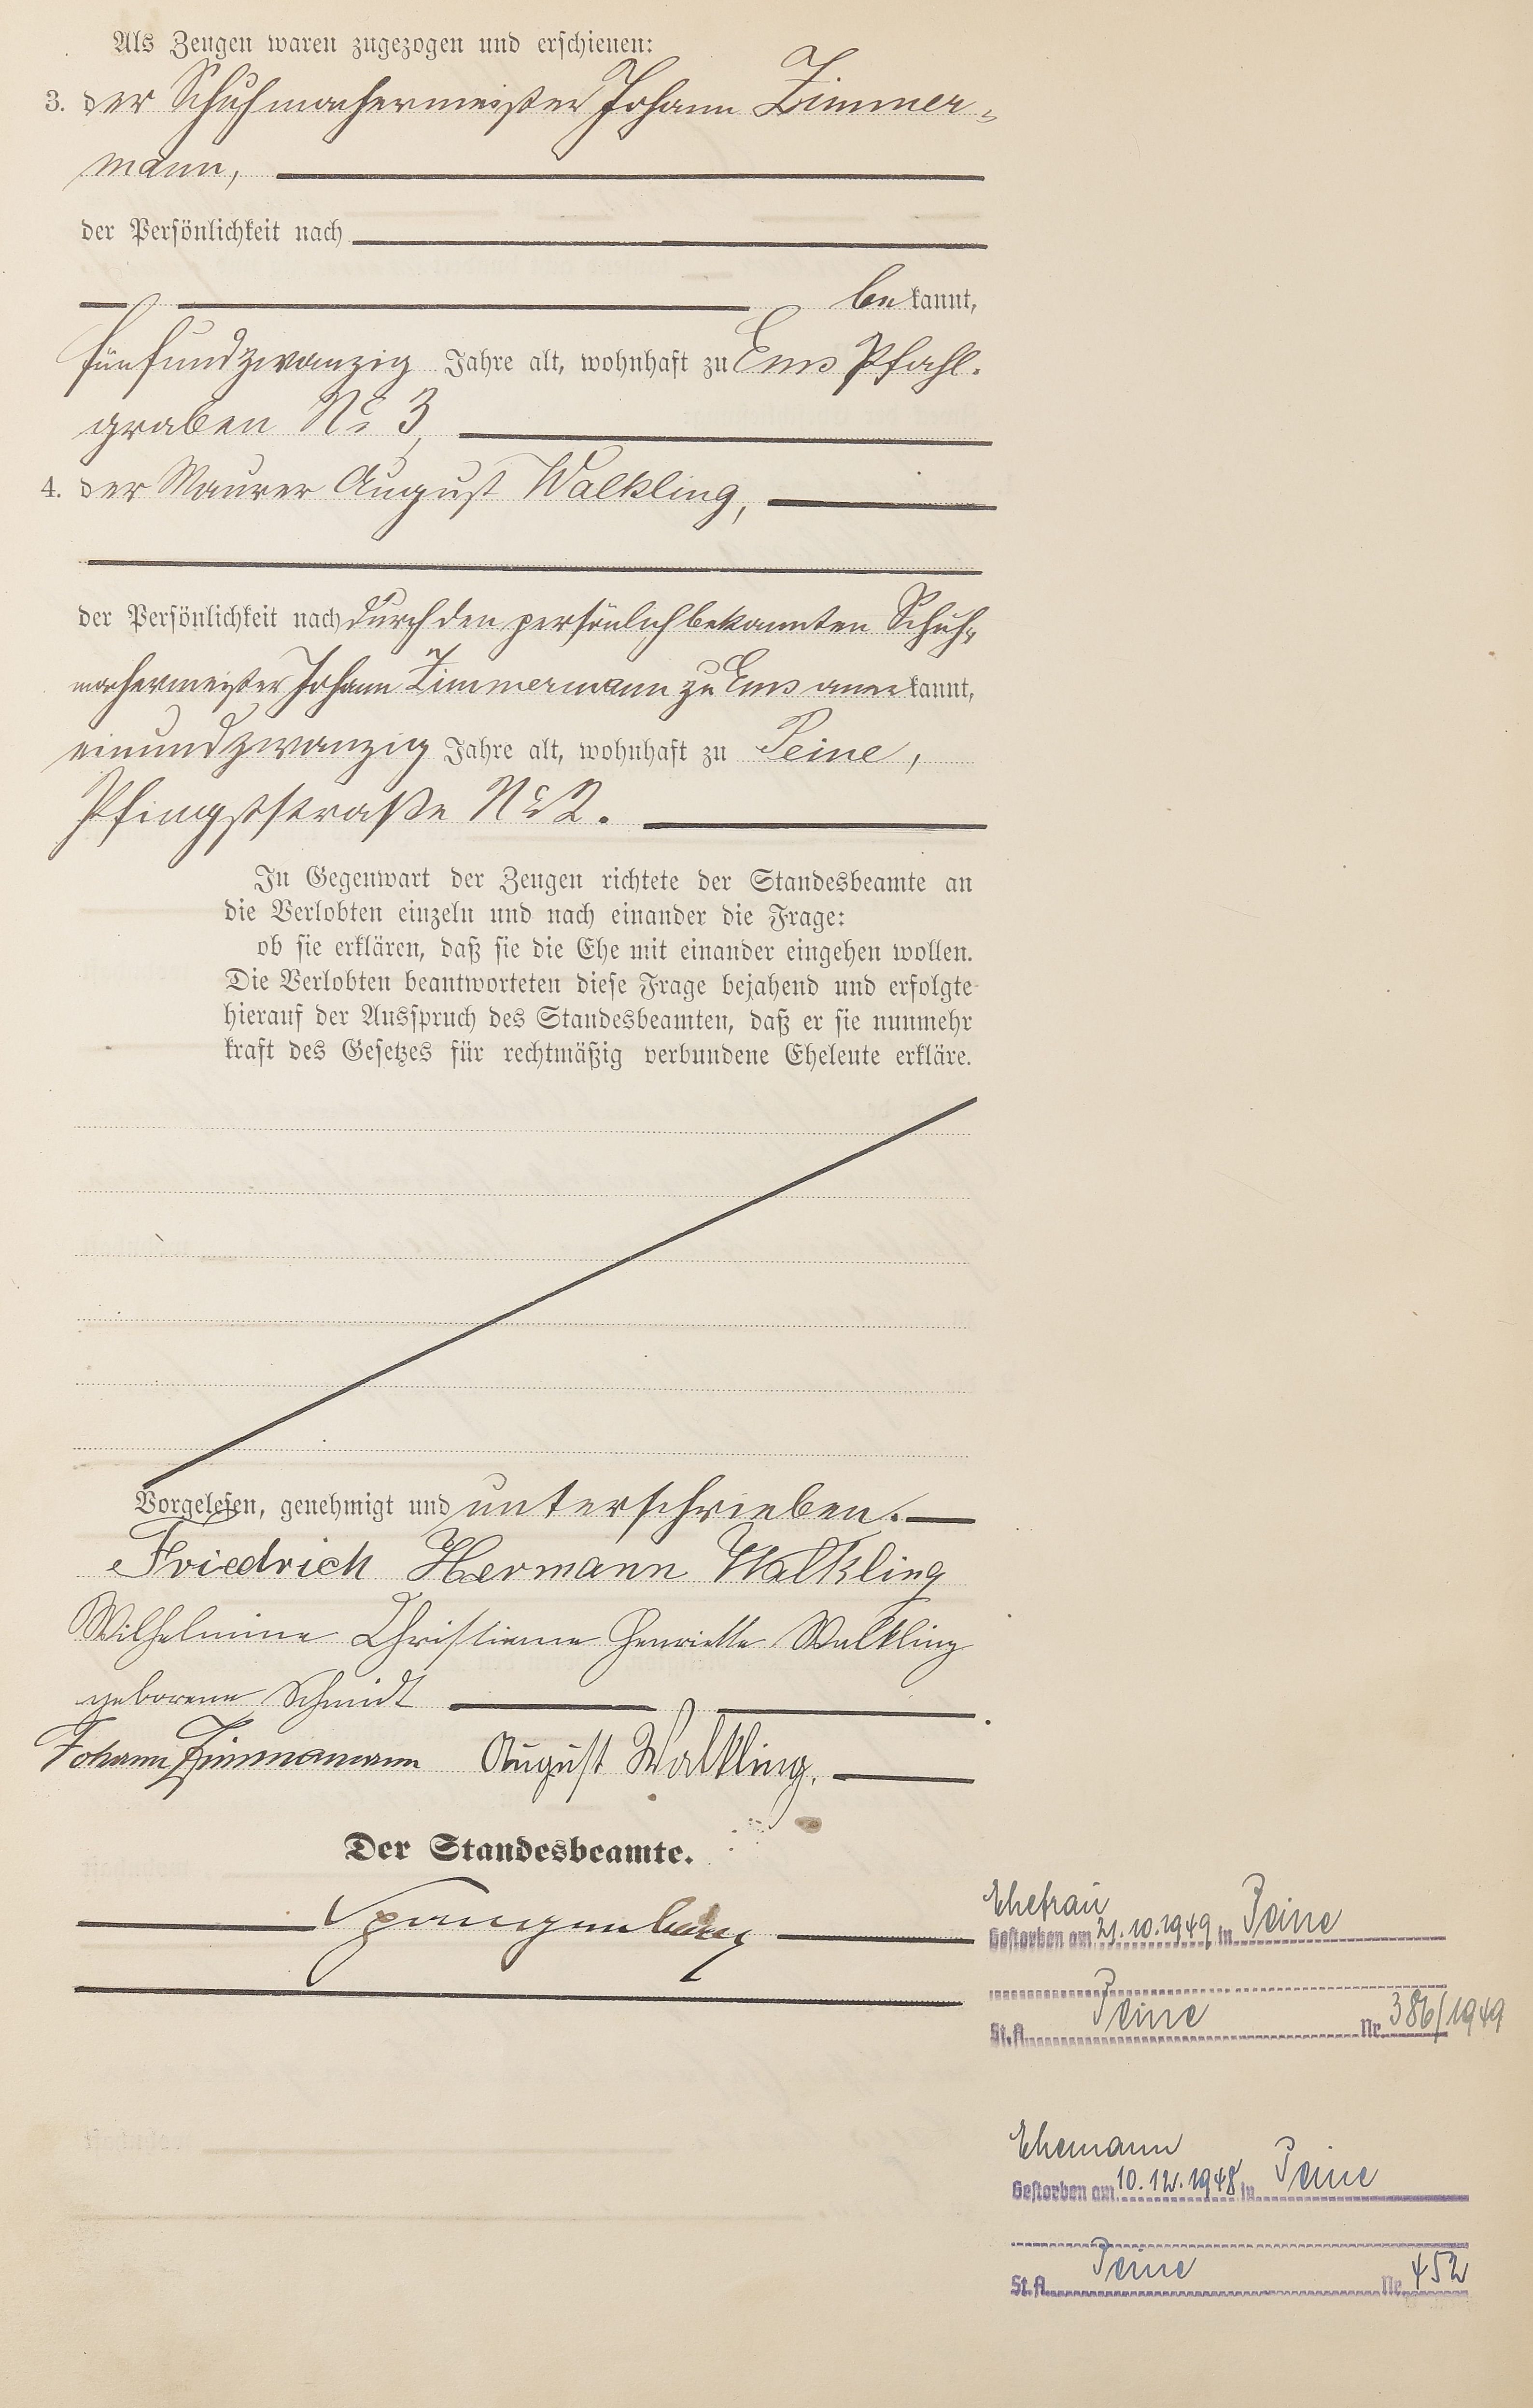 Als Zeugen waren zugezogen und erschienen:
3. der Schuhmachermeister Johann Zimmer-
mann,
der Persönlichkeit nach
bekannt,
fünfundzwanzig Jahre alt, wohnhaft zu Ems Pfahl-
graben No 3,
4. der Maurer August Walkling,
der Persönlichkeit nach durch den persönlich bekannten Schuh-
machermeister Johann Zimmermann zu Ems anerkannt,
einundzwanzig Jahre alt, wohnhaft zu Peine,
Pfingststraße No 2.
In Gegenwart der Zeugen richtete der Standesbeamte an
die Verlobten einzeln und nach einander die Frage:
ob sie erklären, daß sie die Ehe mit einander eingehen wollen.
Die Verlobten beantworteten diese Frage bejahend und erfolgte
hierauf der Ausspruch des Standesbeamten, daß er sie nunmehr
kraft des Gesetzes für rechtmäßig verbundene Eheleute erkläre.
Vorgelesen, genehmigt und unterschrieben.
Friedrich Hermann Walkling
Wilhelmine Christiane Henriette Walkling
geborene Schmidt
Johann Zimmermann August Walkling.
Der Standesbeamte.
Spangenberg
Ehefrau
Gestorben am 21.10.1949 in Peine
Peine
St.A. Nr. 386/1949
Ehemann
Gestorben am 10.12.1948 in Peine
Peine
St.A. Nr. 452